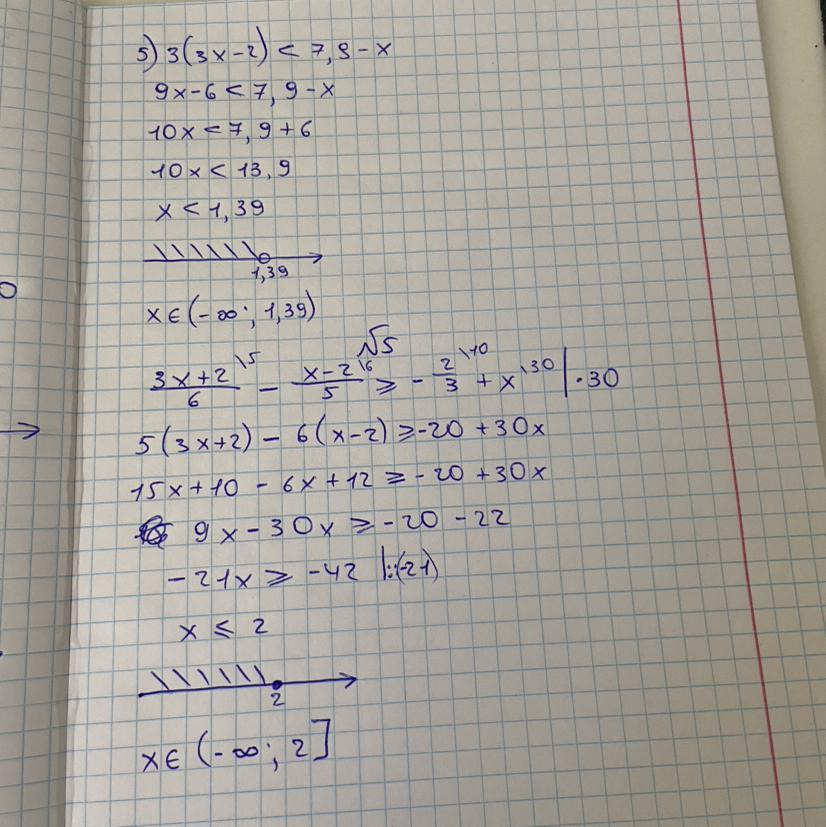 5) 3(3x-2) < 7,9-x
9x-6 < 7,9-x
10x < 7,9+6
10x < 13,9
x < 1,39
1,39
x∈(-∞; 1,39)
√5
(3x+2)/6 \5 - (x-2)/5 \6 ⩾ -2/3 \10 + x \30 | ·30
5(3x+2) - 6(x-2) ⩾ -20 + 30x
15x+10 - 6x+12 ⩾ -20 +30x
9x-30x ⩾ -20 -22
-21x ⩾ -42 |:(-21)
x ⩽ 2
2
x∈(-∞; 2]